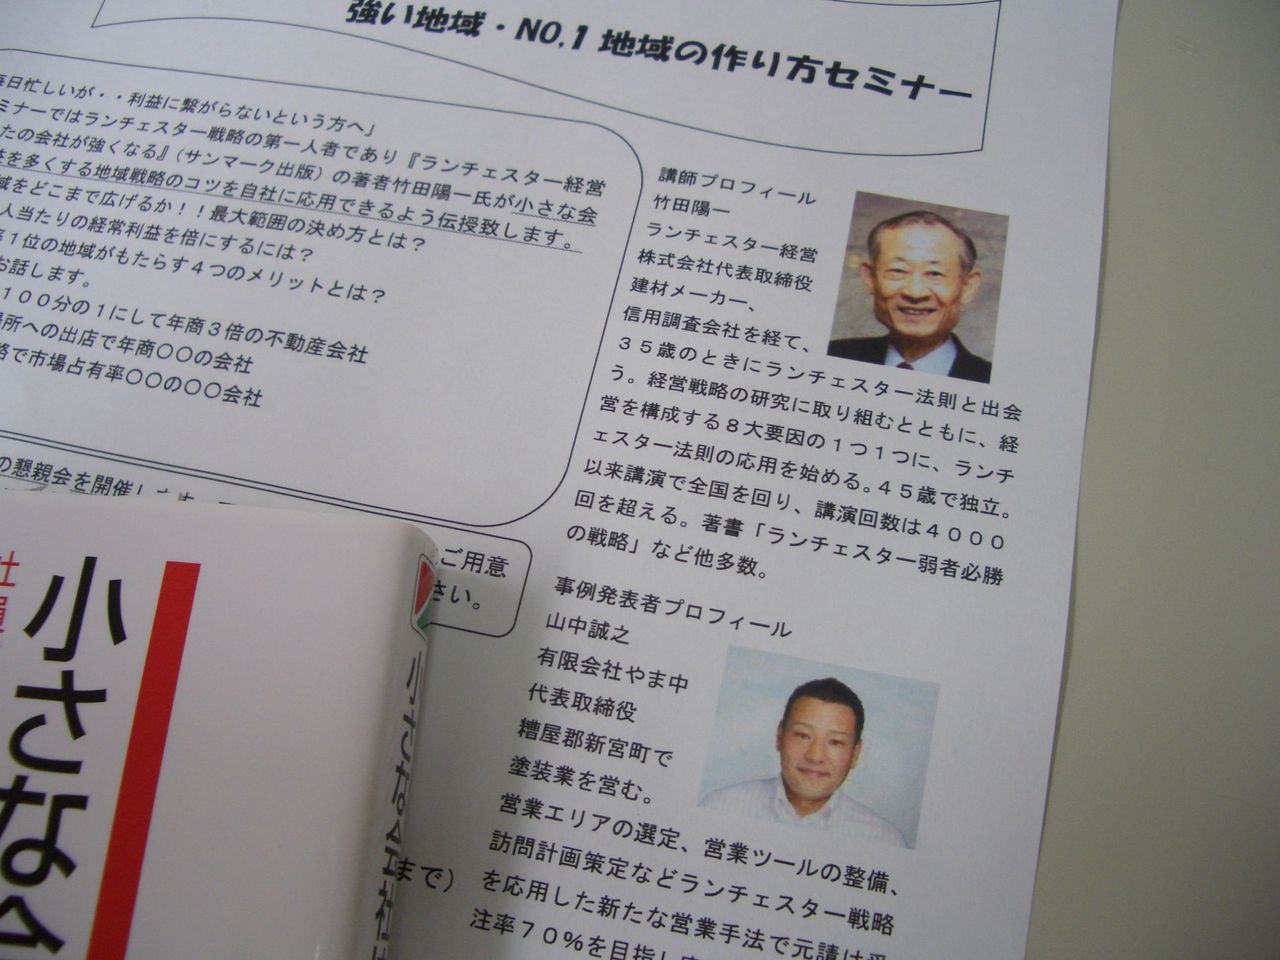 強い地域・NO.1 地域の作り方セミナー
毎日忙しいが・・利益に繋がらないという方へ」
ミナーではランチェスター戦略の第一人者であり『ランチェスター経営
たの会社が強くなる』(サンマーク出版)の著者竹田陽一氏が小さな会
を多くする地域戦略のコツを自社に応用できるよう伝授致します。
域をどこまで広げるか!!最大範囲の決め方とは?
人当たりの経常利益を倍にするには?
1位の地域がもたらす4つのメリットとは?
お話します。
100分の1にして年商3倍の不動産会社
場所への出店で年商〇〇の会社
略で市場占有率〇〇の〇〇会社
の懇親会を開催します
ご用意
さい。
まで)
講師プロフィール
竹田陽一
ランチェスター経営
株式会社代表取締役
建材メーカー、
信用調査会社を経て、
35歳のときにランチェスター法則と出会
う。経営戦略の研究に取り組むとともに、経
営を構成する8大要因の1つ1つに、ランチ
ェスター法則の応用を始める。45歳で独立。
以来講演で全国を回り、講演回数は4000
回を超える。著書「ランチェスター弱者必勝
の戦略」など他多数。
事例発表者プロフィール
山中誠之
有限会社やま中
代表取締役
糟屋郡新宮町で
塗装業を営む。
営業エリアの選定、営業ツールの整備、
訪問計画策定などランチェスター戦略
を応用した新たな営業手法で元請け受
注率70%を目指し
小さな会社は
小さな会
社員